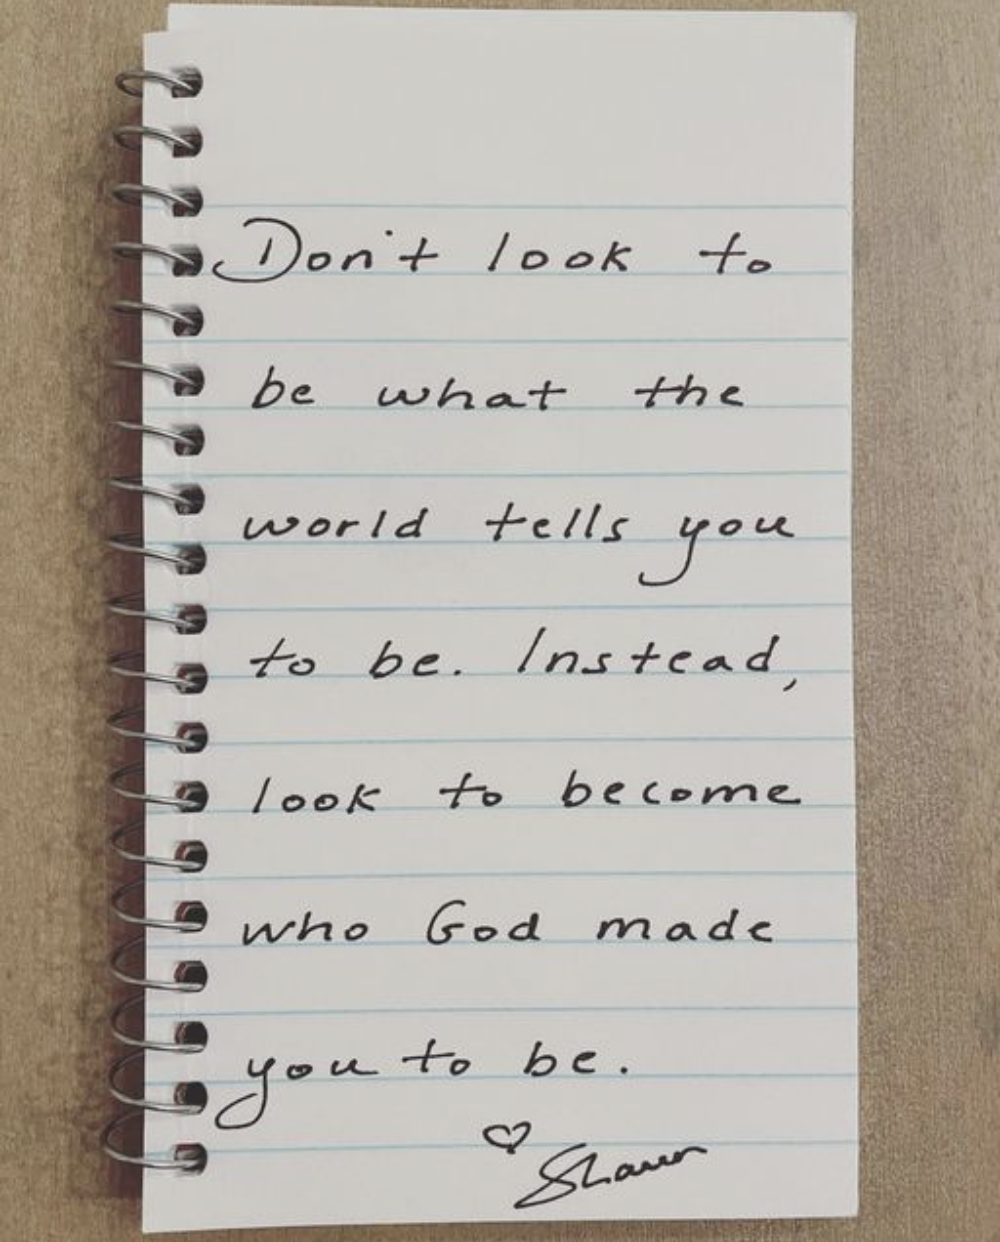 Don't look to
be what the
world tells you
to be. Instead,
look to become
who God made
you to be.
♡
Shawn